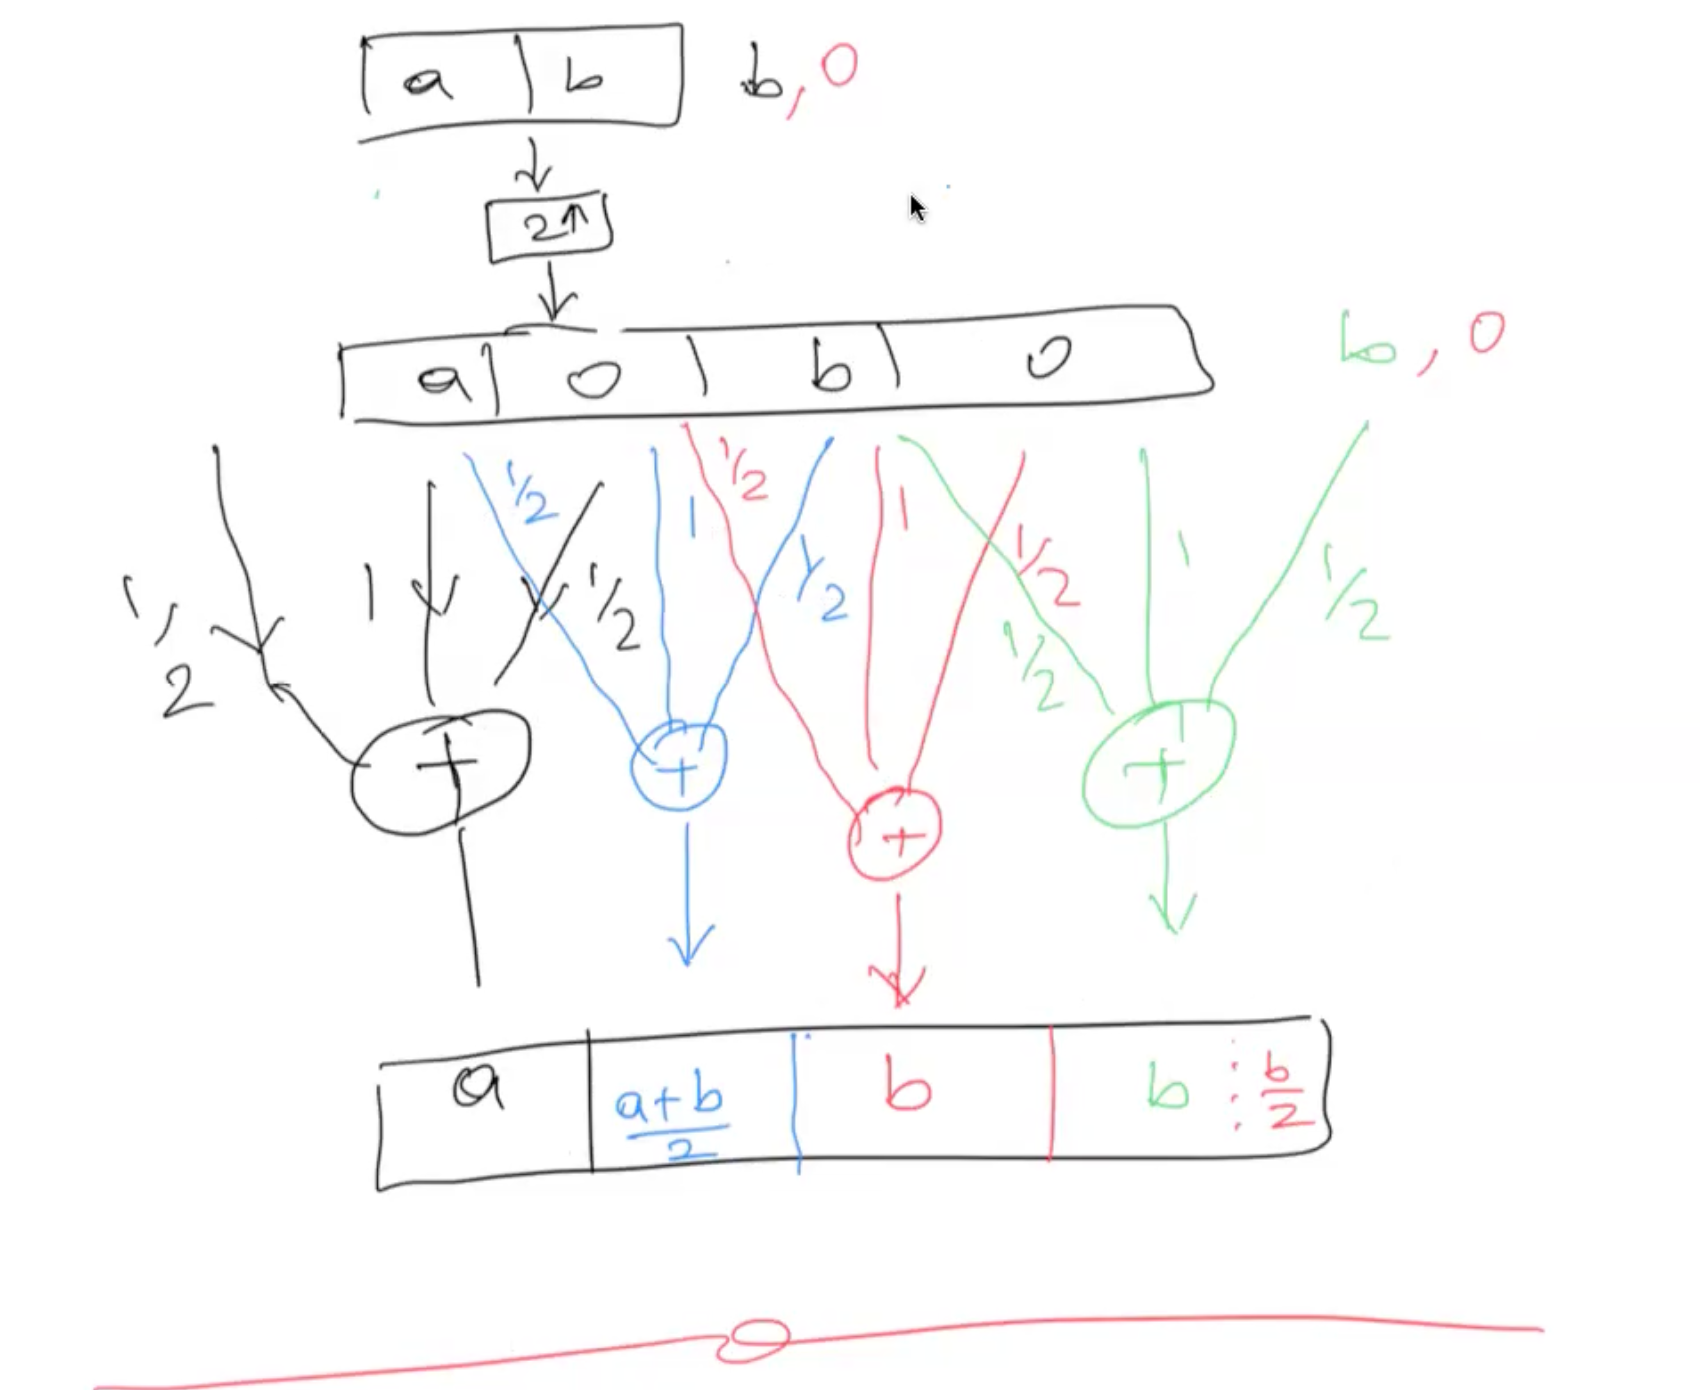 a | b b, 0
2↑
a | 0 | b | 0 b, 0
1/2 1 1/2 1/2 1 1/2 1/2 1 1/2 1/2 1 1/2
+ + + +
a | a+b/2 | b | b ⋮ b/2